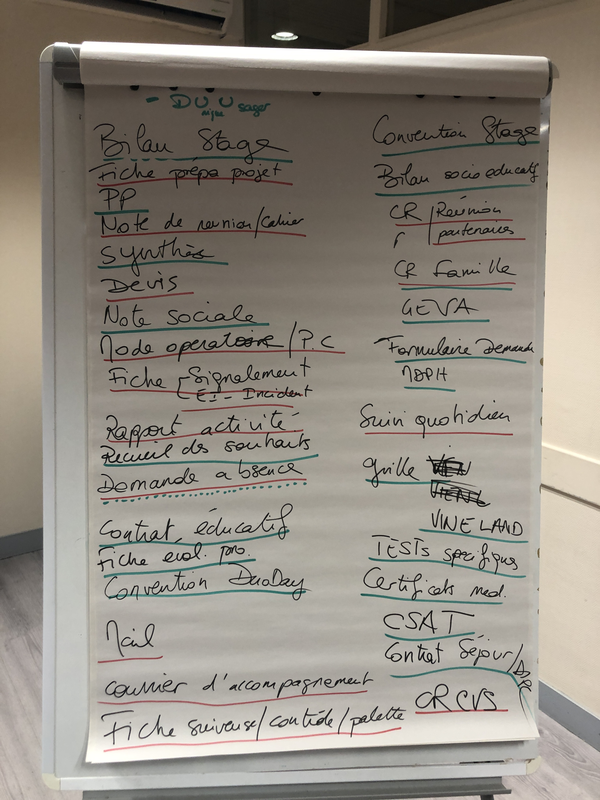 - DU U sager
nique
Bilan Stage
Fiche prépa projet
PP
Note de reunion/cahier
Synthès
Devis
Note sociale
Mode operatoire / P.C
Fiche Signalement
E.I - Incident
Rapport activité
Recueil des souhaits
Demande absence
Contrat éducatif
Fiche eval. pro.
Convention DuoDay
Mail
courrier d'accompagnement
Fiche suiveuse/contrôle/palette
Convention Stage
Bilan socio educatif
CR / Réunion
partenaires
CR Famille
GEVA
Formulaire Demande
MDPH
Suivi quotidien
grille
VINELAND
TESTs specifiques
Certificats med.
CSAT
Contrat Séjour/
CR CVS